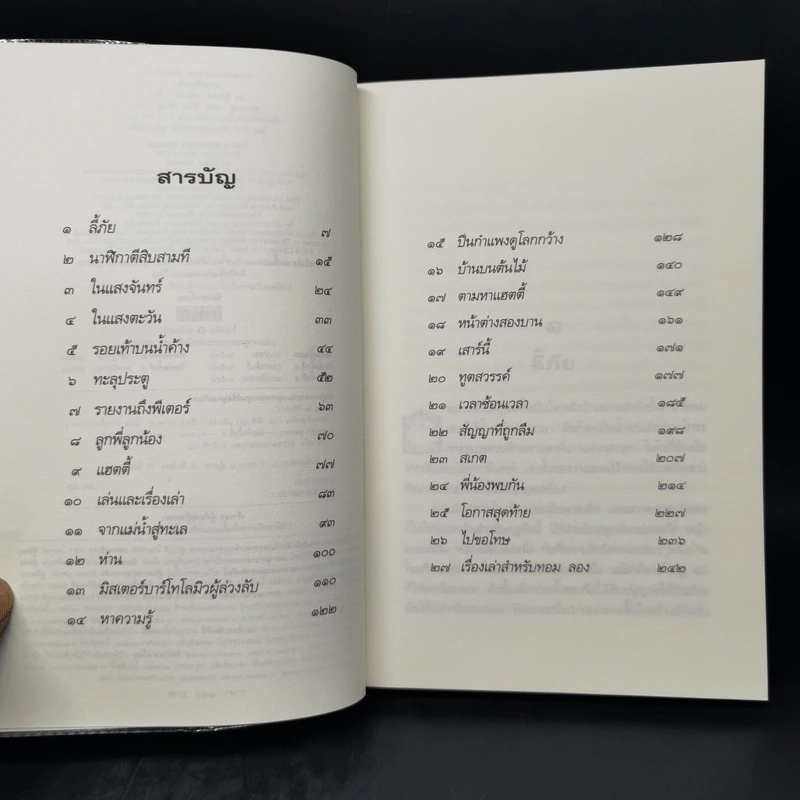 สารบัญ
๑ ลี้ภัย ๗
๒ นาฬิกาตีสิบสามที ๑๕
๓ ในแสงจันทร์ ๒๔
๔ ในแสงตะวัน ๓๓
๕ รอยเท้าบนน้ำค้าง ๔๔
๖ ทะลุประตู ๕๒
๗ รายงานถึงพีเตอร์ ๖๓
๘ ลูกพี่ลูกน้อง ๗๐
๙ แฮตตี้ ๗๗
๑๐ เล่นและเรื่องเล่า ๘๓
๑๑ จากแม่น้ำสู่ทะเล ๙๓
๑๒ ห่าน ๑๐๐
๑๓ มิสเตอร์บาร์โทโลมิวผู้ล่วงลับ ๑๑๐
๑๔ หาความรู้ ๑๒๒
๑๕ ปีนกำแพงดูโลกกว้าง ๑๒๘
๑๖ บ้านบนต้นไม้ ๑๔๐
๑๗ ตามหาแฮตตี้ ๑๔๙
๑๘ หน้าต่างสองบาน ๑๖๑
๑๙ เสาร์นี้ ๑๗๑
๒๐ ทูตสวรรค์ ๑๗๗
๒๑ เวลาซ้อนเวลา ๑๘๕
๒๒ สัญญาที่ถูกลืม ๑๙๘
๒๓ สเกต ๒๐๗
๒๔ พี่น้องพบกัน ๒๑๔
๒๕ โอกาสสุดท้าย ๒๒๗
๒๖ ไปขอโทษ ๒๓๖
๒๗ เรื่องเล่าสำหรับทอม ลอง ๒๔๒